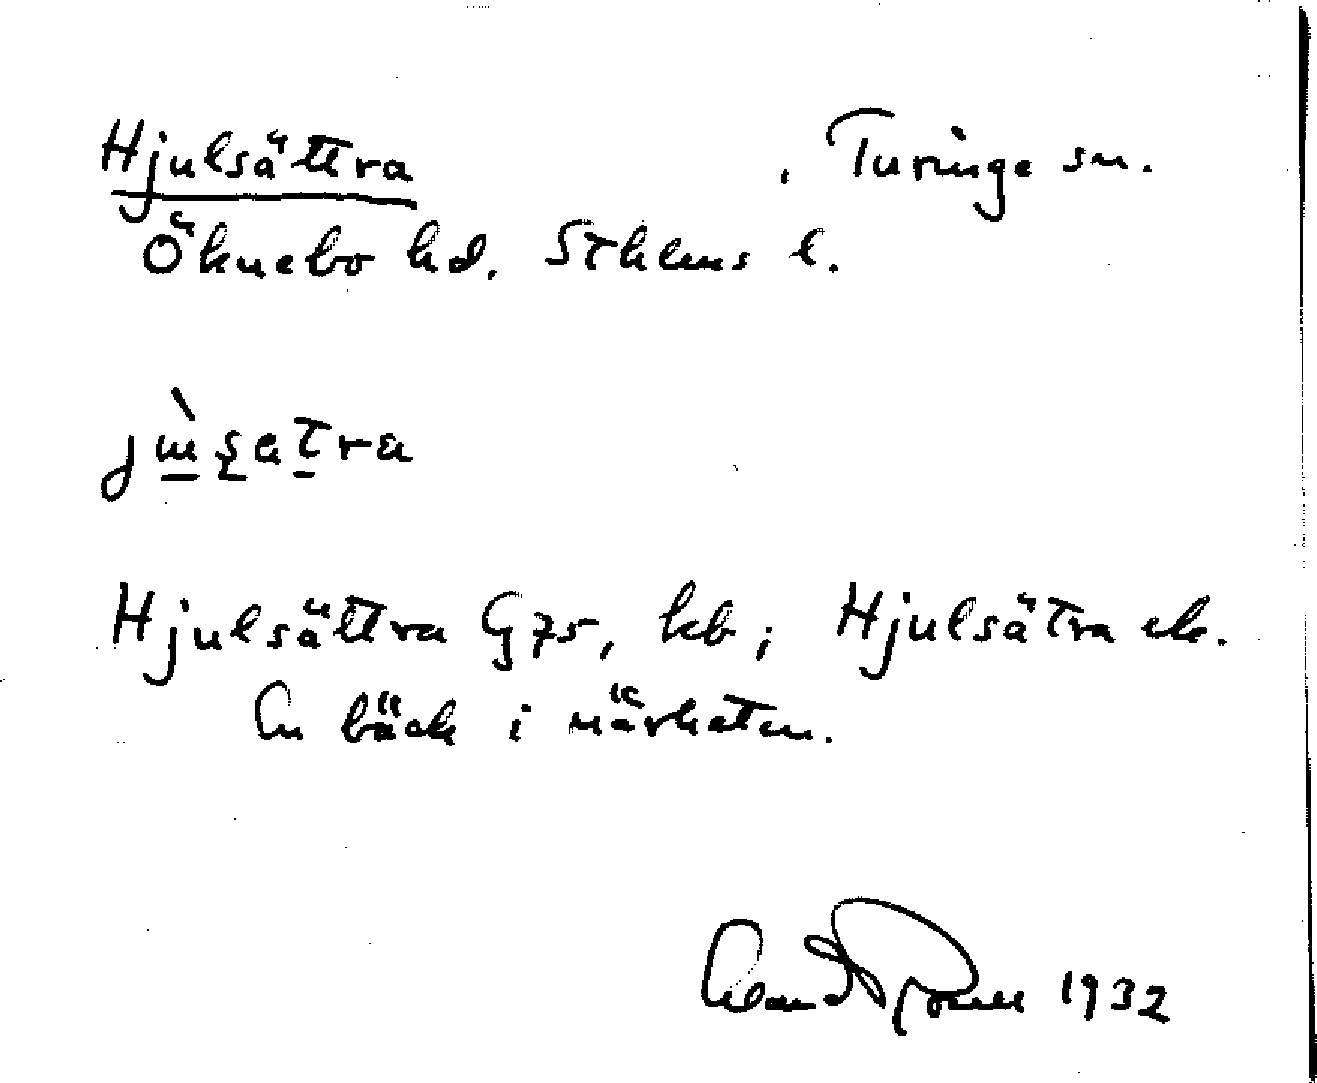 Hjulsättra , Turinge sn.
Öknebo hd. Sthlms l.
Hjulsättra G75, kb; Hjulsätra ek.
En bäck i närheten.
1932